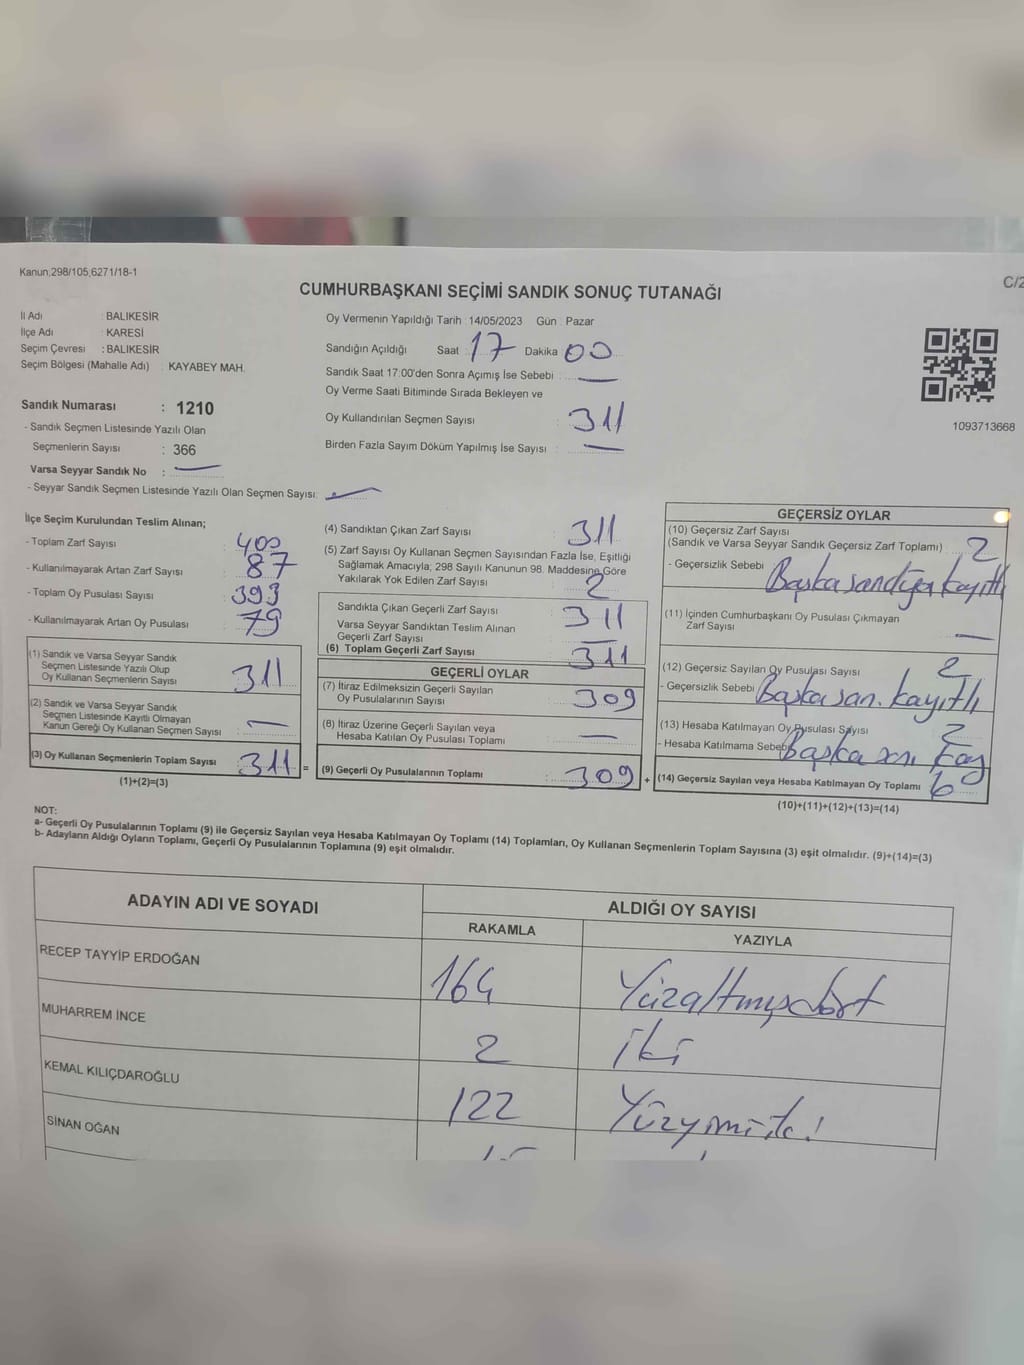 Kanun;298/105,6271/18-1
C/2
CUMHURBAŞKANI SEÇİMİ SANDIK SONUÇ TUTANAĞI
İl Adı : BALIKESİR
İlçe Adı : KARESİ
Seçim Çevresi : BALIKESİR
Seçim Bölgesi (Mahalle Adı) : KAYABEY MAH.
Sandık Numarası : 1210
- Sandık Seçmen Listesinde Yazılı Olan
Seçmenlerin Sayısı : 366
Varsa Seyyar Sandık No : —
- Seyyar Sandık Seçmen Listesinde Yazılı Olan Seçmen Sayısı: —
Oy Vermenin Yapıldığı Tarih : 14/05/2023 Gün : Pazar
Sandığın Açıldığı Saat : 17 Dakika 00
Sandık Saat 17:00'den Sonra Açımış İse Sebebi : —
Oy Verme Saati Bitiminde Sırada Bekleyen ve
Oy Kullandırılan Seçmen Sayısı : 311
Birden Fazla Sayım Döküm Yapılmış İse Sayısı : —
1093713668
İlçe Seçim Kurulundan Teslim Alınan;
- Toplam Zarf Sayısı : 400
- Kullanılmayarak Artan Zarf Sayısı : 87
- Toplam Oy Pusulası Sayısı : 393
- Kullanılmayarak Artan Oy Pusulası : 79
(1) Sandık ve Varsa Seyyar Sandık
Seçmen Listesinde Yazılı Olup
Oy Kullanan Seçmenlerin Sayısı : 311
(2) Sandık ve Varsa Seyyar Sandık
Seçmen Listesinde Kayıtlı Olmayan
Kanun Gereği Oy Kullanan Seçmen Sayısı : —
(3) Oy Kullanan Seçmenlerin Toplam Sayısı : 311 =
(1)+(2)=(3)
(4) Sandıktan Çıkan Zarf Sayısı : 311
(5) Zarf Sayısı Oy Kullanan Seçmen Sayısından Fazla İse, Eşitliği
Sağlamak Amacıyla; 298 Sayılı Kanunun 98. Maddesine Göre
Yakılarak Yok Edilen Zarf Sayısı : 2
Sandıkta Çıkan Geçerli Zarf Sayısı : 311
Varsa Seyyar Sandıktan Teslim Alınan
Geçerli Zarf Sayısı : —
(6) Toplam Geçerli Zarf Sayısı : 311
GEÇERLİ OYLAR
(7) İtiraz Edilmeksizin Geçerli Sayılan
Oy Pusulalarının Sayısı : 309
(8) İtiraz Üzerine Geçerli Sayılan veya
Hesaba Katılan Oy Pusulası Toplamı : —
(9) Geçerli Oy Pusulalarının Toplamı : 309 +
GEÇERSİZ OYLAR
(10) Geçersiz Zarf Sayısı
(Sandık ve Varsa Seyyar Sandık Geçersiz Zarf Toplamı) : 2
- Geçersizlik Sebebi : Başka sandığa kayıtlı
(11) İçinden Cumhurbaşkanı Oy Pusulası Çıkmayan
Zarf Sayısı : —
(12) Geçersiz Sayılan Oy Pusulası Sayısı : 2
- Geçersizlik Sebebi Başka san. kayıtlı
(13) Hesaba Katılmayan Oy Pusulası Sayısı : 2
- Hesaba Katılmama Sebebi Başka san. kay
(14) Geçersiz Sayılan veya Hesaba Katılmayan Oy Toplamı : 6
(10)+(11)+(12)+(13)=(14)
NOT:
a- Geçerli Oy Pusulalarının Toplamı (9) ile Geçersiz Sayılan veya Hesaba Katılmayan Oy Toplamı (14) Toplamları, Oy Kullanan Seçmenlerin Toplam Sayısına (3) eşit olmalıdır. (9)+(14)=(3)
b- Adayların Aldığı Oyların Toplamı, Geçerli Oy Pusulalarının Toplamına (9) eşit olmalıdır.
ADAYIN ADI VE SOYADI ALDIĞI OY SAYISI
RAKAMLA YAZIYLA
RECEP TAYYİP ERDOĞAN 164 Yüzaltmışdört
MUHARREM İNCE 2 iki
KEMAL KILIÇDAROĞLU 122 Yüzyirmiiki
SİNAN OĞAN